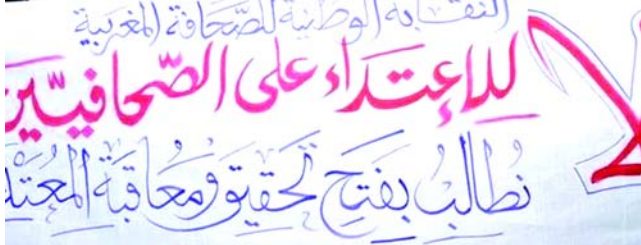 النقابة الوطنية للصحافة المغربية
لا للإعتداء على الصّحافيّين
نُطالبُ بفتح تحقيق ومعاقبة المعتد